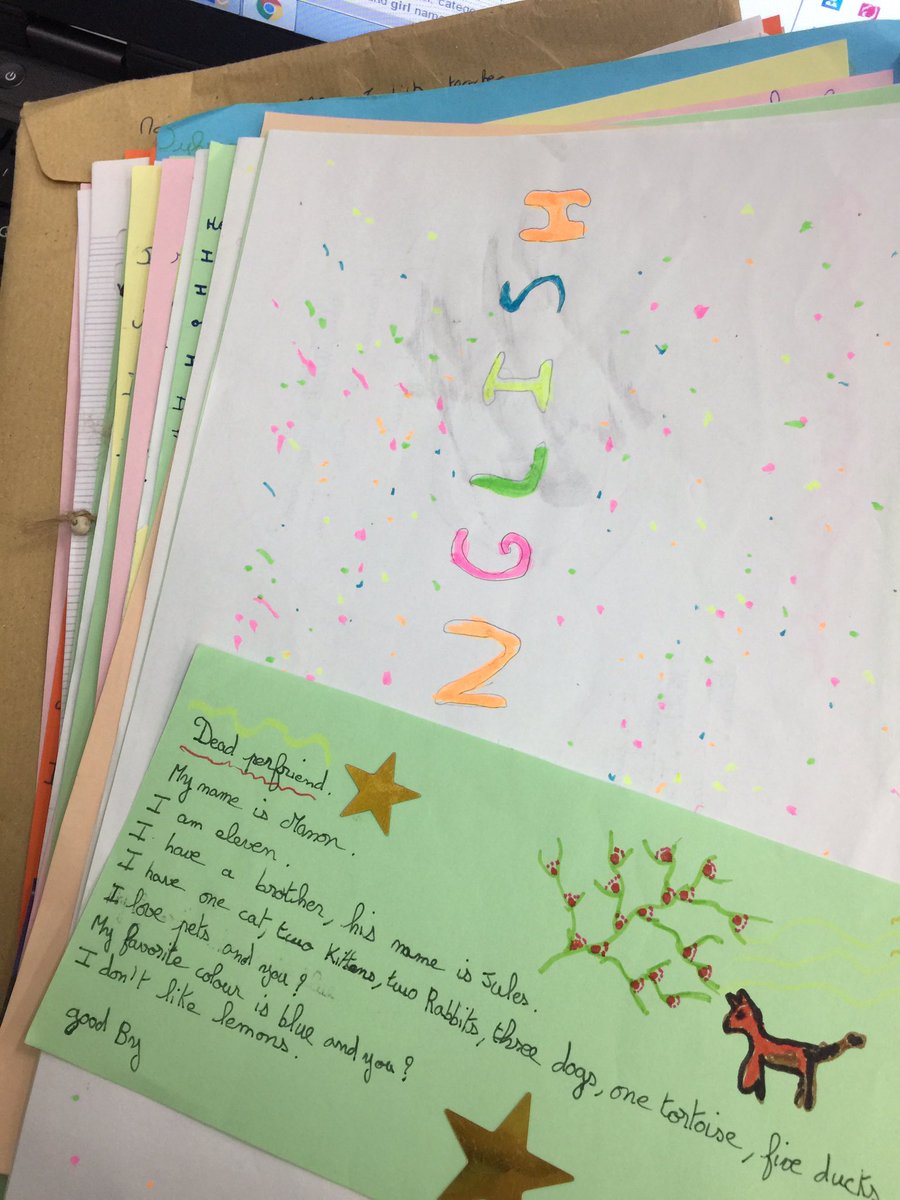 and girl name
NGLISH
Dead perfriend.
My name is Manon.
I am eleven.
I have a brother, his name is Jules.
I have one cat, two Kittens, two Rabbits, three dogs, one tortoise, five ducks
I love pets and you?
My favorite colour is blue and you?
I don't like lemons.
good By